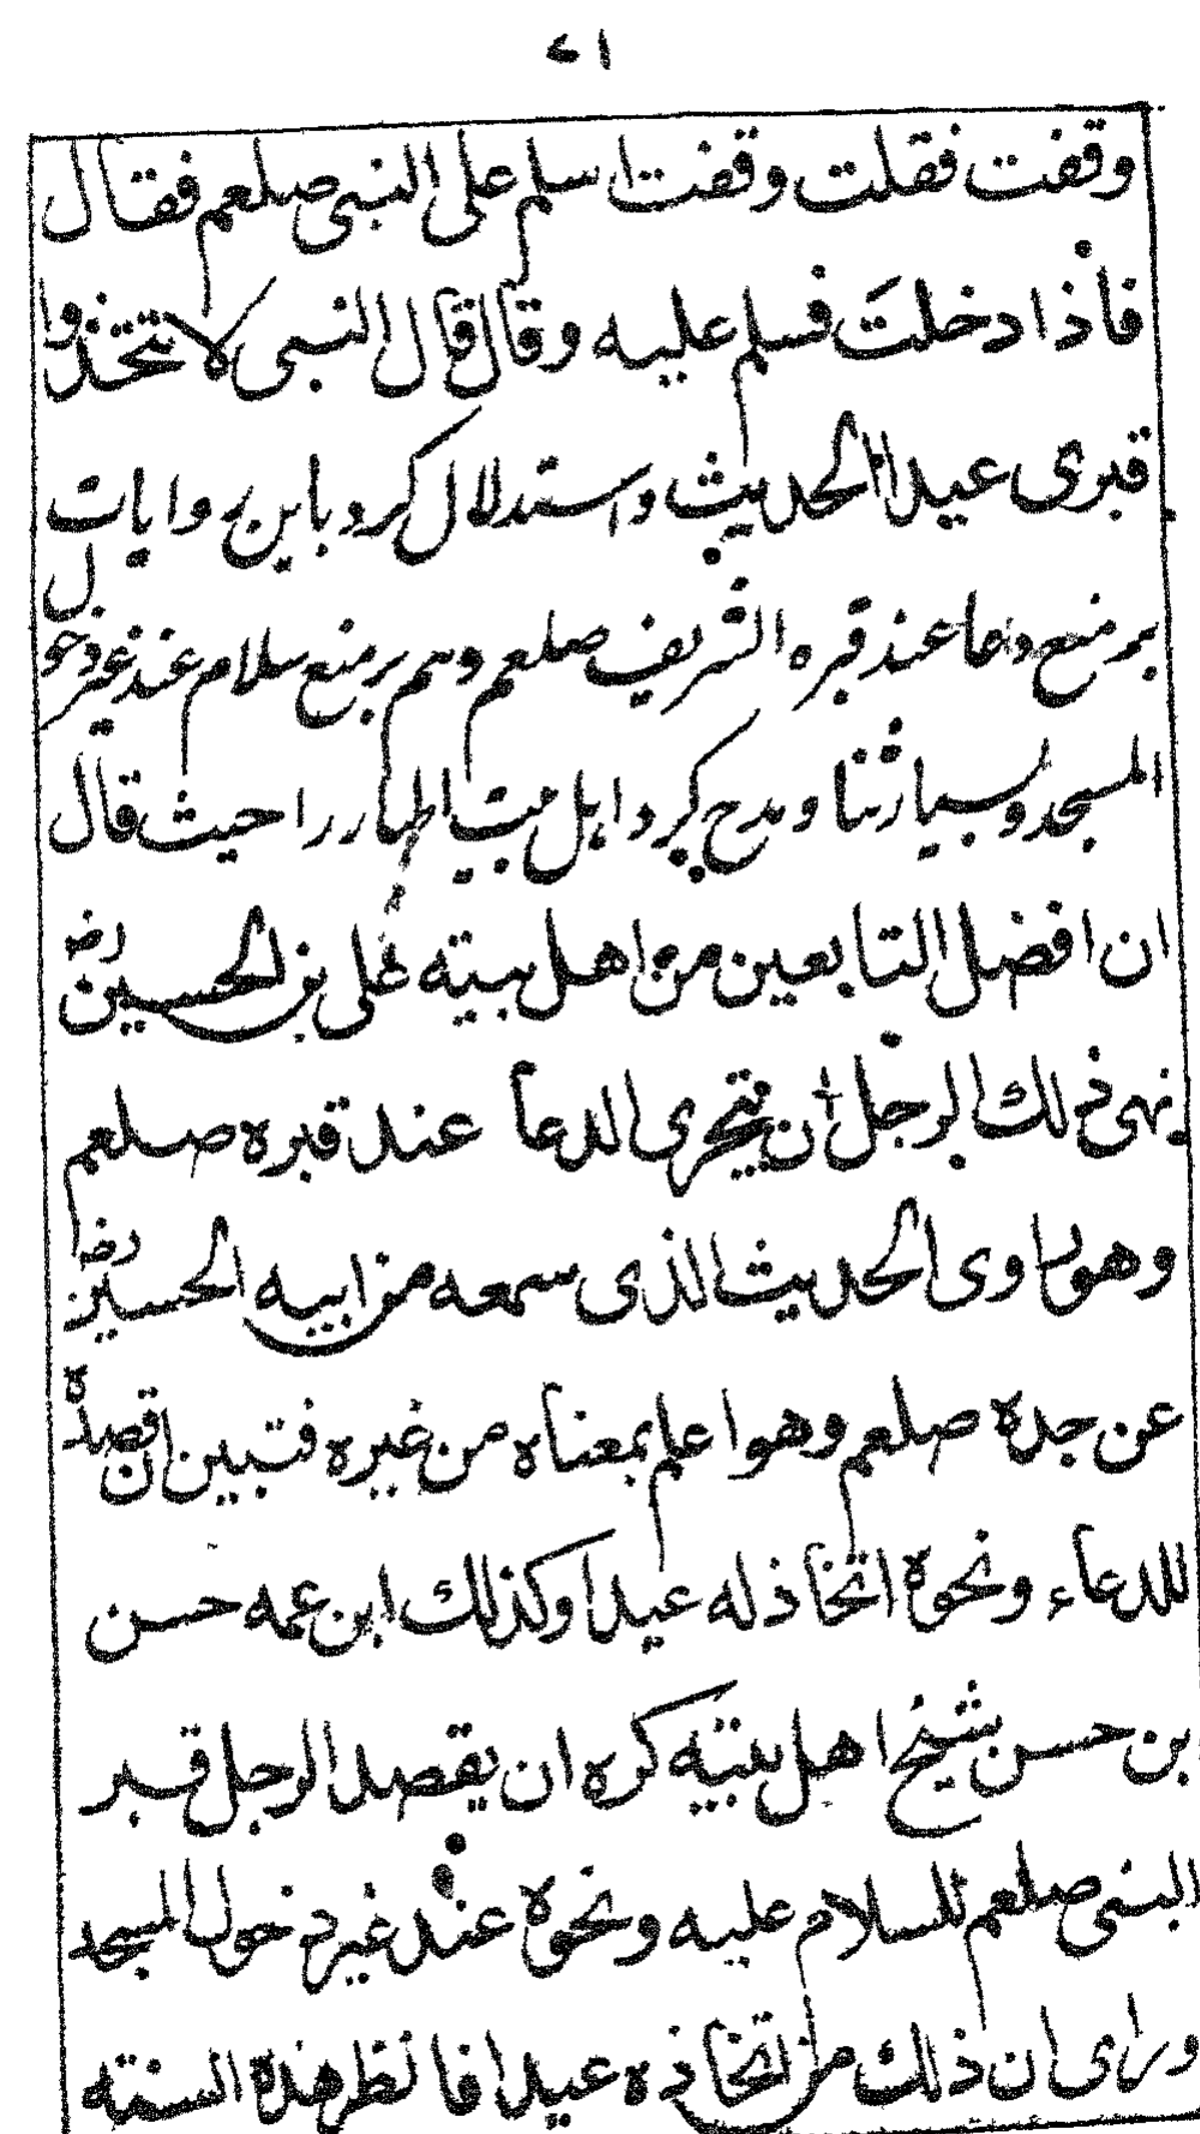 ۷۱
وقفت فقلت وقفت اسلم على النبى صلعم فقال
فاذا دخلتَ فسلم عليه وقال قال النبى لا تتخذوا
قبرى عيدا الحديث واستدلال كرد باين روايات
بر منع دعا عند قبره الشريف صلعم وهم بر منع سلام عند غير دخول
المسجد وبسيار ثنا ومدح كرد اهل بيت اطهار را حيث قال
ان افضل التابعين من اهل بيته على بن الحسين رضہ
نهى ذلك الرجل ان يتحرى الدعا عند قبره صلعم
وهو راوى الحديث الذى سمعه من ابيه الحسين رضہ
عن جده صلعم وهو اعلم بمعناه من غيره فتبين ان قصده
للدعاء ونحوه اتخاذ له عيدا وكذلك ابن عمه حسن
بن حسن شيخ اهل بيته كره ان يقصد الرجل قبر
النبى صلعم للسلام عليه ونحوه عند غير دخول المسجد
وراى ان ذلك من اتخاذه عيدا فانظر هذه السنته